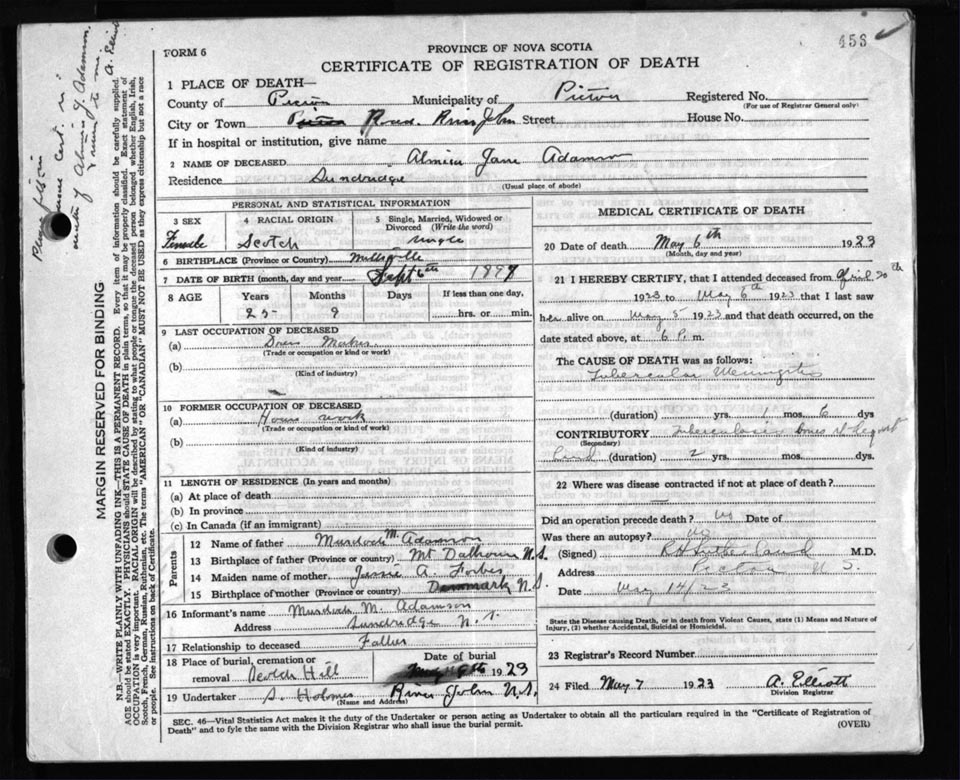 456
FORM 6
PROVINCE OF NOVA SCOTIA
CERTIFICATE OF REGISTRATION OF DEATH
1 PLACE OF DEATH—
County of Pictou Municipality of Pictou Registered No.
(For use of Registrar General only)
City or Town Road River John Street House No.
If in hospital or institution, give name
2 NAME OF DECEASED Almira Jane Adamson
Residence Sundridge
(Usual place of abode)
PERSONAL AND STATISTICAL INFORMATION
3 SEX
Female
4 RACIAL ORIGIN
Scotch
5 Single, Married, Widowed or Divorced (Write the word)
single
6 BIRTHPLACE (Province or Country) Millsville
7 DATE OF BIRTH (month, day and year) Sept 6th
8 AGE Years Months Days If less than one day,
25 hrs. or min.
9 LAST OCCUPATION OF DECEASED
(a) Dress Maker
(Trade or occupation or kind or work)
(b)
(Kind of industry)
10 FORMER OCCUPATION OF DECEASED
(a) House work
(Trade or occupation or kind or work)
(b)
(Kind of industry)
11 LENGTH OF RESIDENCE (In years and months)
(a) At place of death
(b) In province
(c) In Canada (if an immigrant)
Parents
12 Name of father Murdoch M. Adamson
13 Birthplace of father (Province or country) Mt Dalhousie N.S.
14 Maiden name of mother Jessie A. Forbes
15 Birthplace of mother (Province or country) Denmark N.S.
16 Informant's name Murdoch M. Adamson
Address Sundridge N.S.
17 Relationship to deceased Father
18 Place of burial, cremation or removal Scotch Hill
Date of burial
1923
19 Undertaker S. Holmes River John N.S.
(Name and Address)
MEDICAL CERTIFICATE OF DEATH
20 Date of death May 6th 1923
(Month, day and year)
21 I HEREBY CERTIFY, that I attended deceased from April 30th
1923 to May 6th 1923 that I last saw
her alive on May 5 1923 and that death occurred, on the
date stated above, at 6 P. m.
The CAUSE OF DEATH was as follows:
Tubercular Meningitis
(duration) yrs. 1 mos. 6 dys
CONTRIBUTORY Tuberculosis
(Secondary)
(duration) 2 yrs. mos. dys.
22 Where was disease contracted if not at place of death?
Did an operation precede death? No Date of
Was there an autopsy? No
(Signed) R H Sutherland M.D.
Address Pictou N S.
Date May 14/23
State the Disease causing Death, or in death from Violent Causes, state (1) Means and Nature of
Injury, (2) whether Accidental, Suicidal or Homicidal.
23 Registrar's Record Number
24 Filed May 7 1923 A. Elliott
Division Registrar
SEC. 46—Vital Statistics Act makes it the duty of the Undertaker or person acting as Undertaker to obtain all the particulars required in the "Certificate of Registration of
Death" and to fyle the same with the Division Registrar who shall issue the burial permit.
(OVER)
MARGIN RESERVED FOR BINDING
N.B.—WRITE PLAINLY WITH UNFADING INK—THIS IS A PERMANENT RECORD. Every item of information should be carefully supplied.
AGE should be stated EXACTLY. PHYSICIANS should STATE CAUSE OF DEATH in plain terms, so that it may be properly classified. Exact statement of
OCCUPATION is very important. RACIAL ORIGIN will be described by stating to what people or tongue the deceased person belonged whether English, Irish,
Scotch, French, German, Russian, Ruthenian, etc. The terms "AMERICAN" or "CANADIAN" MUST NOT BE USED as they express citizenship but not a race
or people. See instructions on back of Certificate.
Please fill in
cert. in
of Almira J. Adamson
to me
A. Elliott